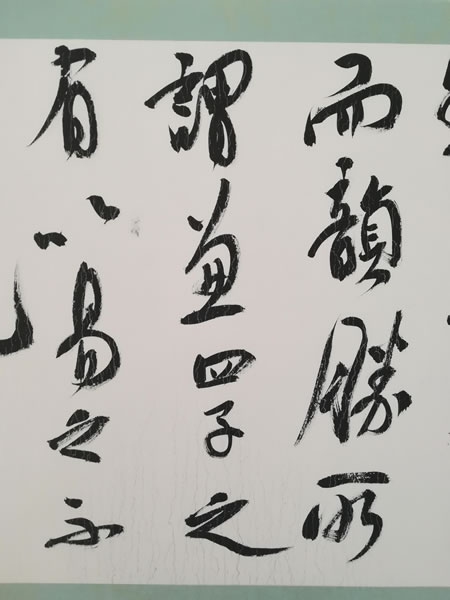 而韻勝所
謂兼四子之
有以易之不